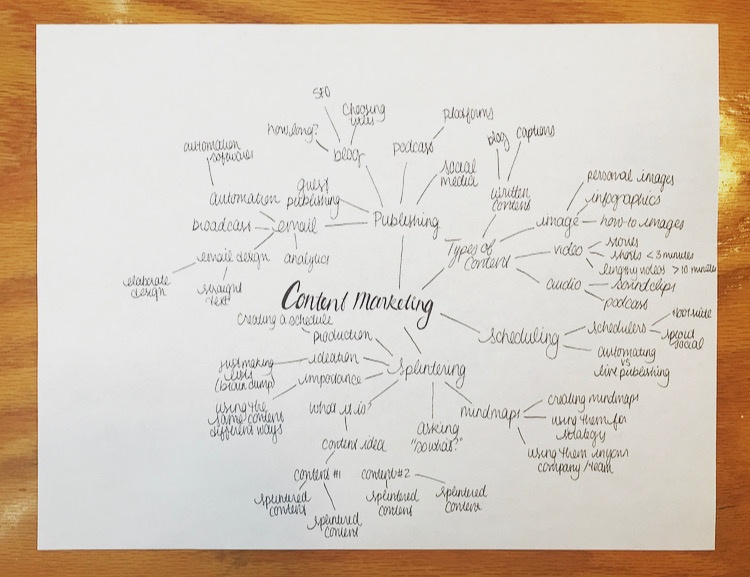 SEO
Choosing
titles
how long?
blog
platforms
podcast
social
media
blog
captions
written
content
automation
softwares
automation
guest
publishing
broadcast
email
Publishing
email design
analytics
elaborate
design
straight
text
personal images
infographics
how-to images
image
Types of
Content
video
stories
shorts < 3 minutes
lengthy videos > 10 minutes
audio
soundclips
podcasts
Content Marketing
creating a schedule
production
ideation
just making
lists
(brain dump)
importance
using the
same content
different ways
Splintering
scheduling
schedulers
hootsuite
sprout
social
automating
vs
live publishing
what is it?
asking
"so what?"
mindmaps
creating mindmaps
using them for
strategy
using them in your
company/team
content idea
content #1
content #2
splintered
content
splintered
content
splintered
content
splintered
content